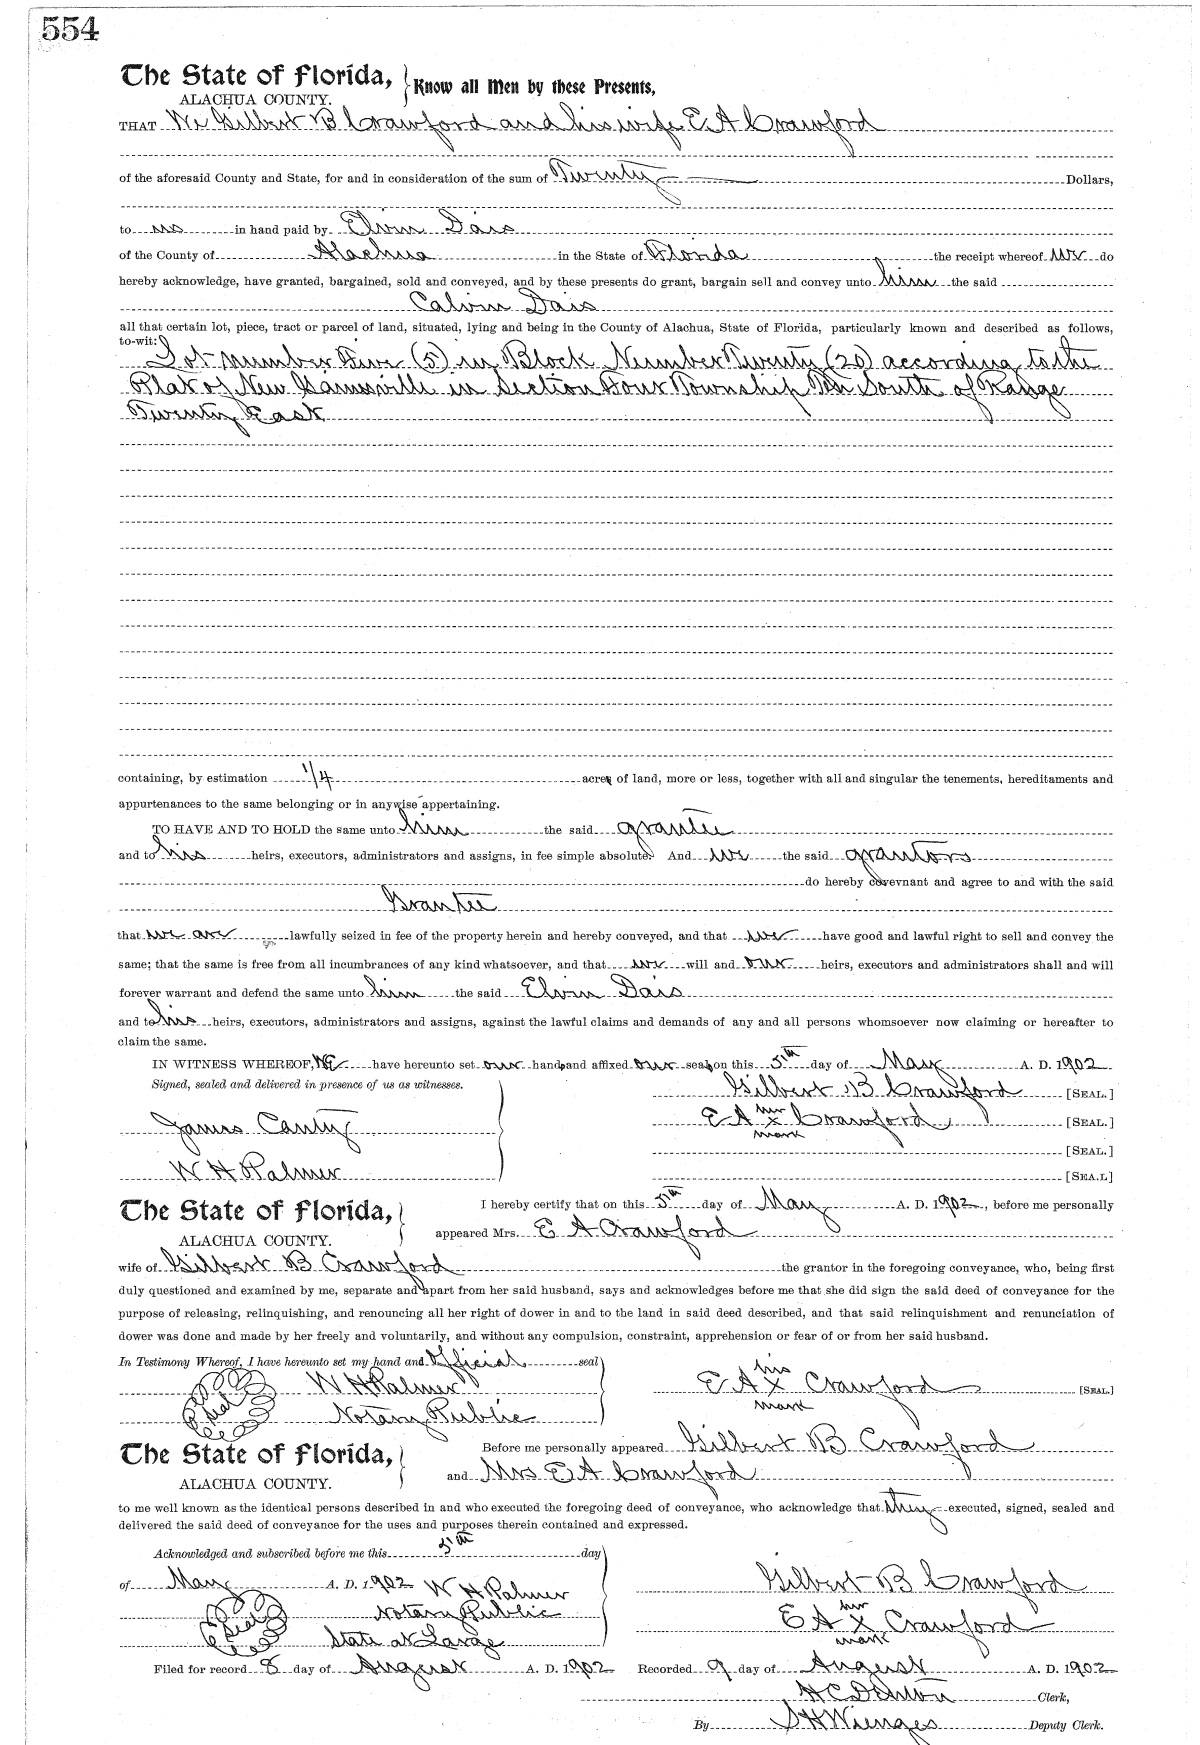 554
The State of Florida, Know all Men by these Presents,
ALACHUA COUNTY.
THAT We Gilbert B Crawford and his wife E A Crawford
of the aforesaid County and State, for and in consideration of the sum of Twenty Dollars,
to us in hand paid by Elvin Dais
of the County of Alachua in the State of Florida the receipt whereof we do
hereby acknowledge, have granted, bargained, sold and conveyed, and by these presents do grant, bargain sell and convey unto him the said
Calvin Dais
all that certain lot, piece, tract or parcel of land, situated, lying and being in the County of Alachua, State of Florida, particularly known and described as follows,
to-wit:
Lot number Five (5) in Block Number Twenty (20) according to the
Plat of New Gainesville in Section Four Township Ten South of Range
Twenty East
containing, by estimation 1/4 acre of land, more or less, together with all and singular the tenements, hereditaments and
appurtenances to the same belonging or in anywise appertaining.
TO HAVE AND TO HOLD the same unto him the said grantee
and to his heirs, executors, administrators and assigns, in fee simple absolute. And we the said grantors
do hereby covevnant and agree to and with the said
Grantee
that we are lawfully seized in fee of the property herein and hereby conveyed, and that we have good and lawful right to sell and convey the
same; that the same is free from all incumbrances of any kind whatsoever, and that we will and our heirs, executors and administrators shall and will
forever warrant and defend the same unto him the said Elvin Dais
and to his heirs, executors, administrators and assigns, against the lawful claims and demands of any and all persons whomsoever now claiming or hereafter to
claim the same.
IN WITNESS WHEREOF, We have hereunto set our hands and affixed our seals on this 5th day of May A. D. 1902
Signed, sealed and delivered in presence of us as witnesses.
Gilbert B Crawford [SEAL.]
her
James Canty E A X Crawford [SEAL.]
mark
[SEAL.]
W H Palmer [SEA.L]
The State of Florida, I hereby certify that on this 5th day of May A. D. 1902, before me personally
ALACHUA COUNTY. appeared Mrs. E A Crawford
wife of Gilbert B Crawford the grantor in the foregoing conveyance, who, being first
duly questioned and examined by me, separate and apart from her said husband, says and acknowledges before me that she did sign the said deed of conveyance for the
purpose of releasing, relinquishing, and renouncing all her right of dower in and to the land in said deed described, and that said relinquishment and renunciation of
dower was done and made by her freely and voluntarily, and without any compulsion, constraint, apprehension or fear of or from her said husband.
In Testimony Whereof, I have hereunto set my hand and official seal
his
W H Palmer E A X Crawford [SEAL.]
mark
seal Notary Public
The State of Florida, Before me personally appeared Gilbert B Crawford
ALACHUA COUNTY. and Mrs E A Crawford
to me well known as the identical persons described in and who executed the foregoing deed of conveyance, who acknowledge that they executed, signed, sealed and
delivered the said deed of conveyance for the uses and purposes therein contained and expressed.
Acknowledged and subscribed before me this 5th day
of May A. D. 1902 W H Palmer Gilbert B Crawford
Notary Public her
seal E A X Crawford
State at Large mark
Filed for record 8 day of August A. D. 1902 Recorded 9 day of August A. D. 1902
H C Denton Clerk,
By S H Wienges Deputy Clerk.